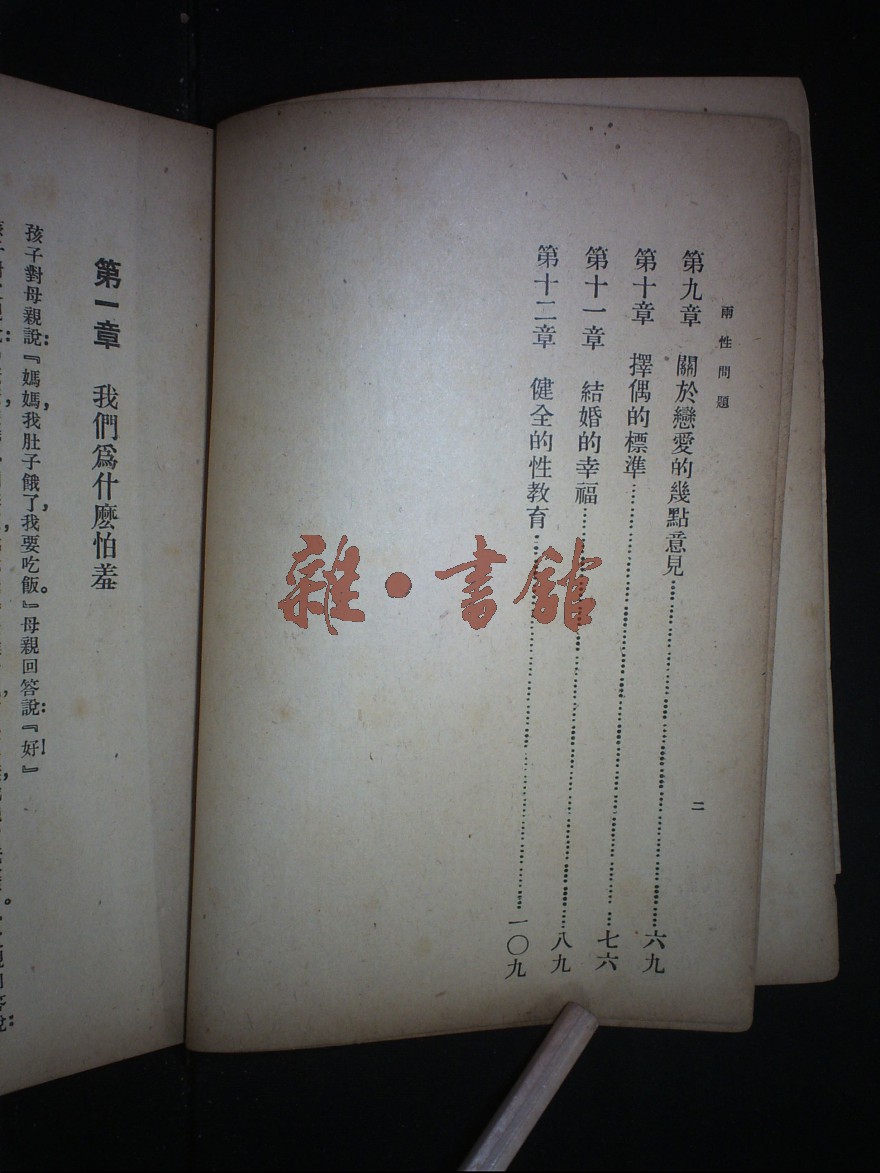 兩性問題
二
第九章 關於戀愛的幾點意見……六九
第十章 擇偶的標準……七六
第十一章 結婚的幸福……八九
第十二章 健全的性教育……一〇九
雜·書館
第一章 我們爲什麽怕羞
孩子對母親說：『媽媽，我肚子餓了，我要吃飯。』母親回答說：『好！』